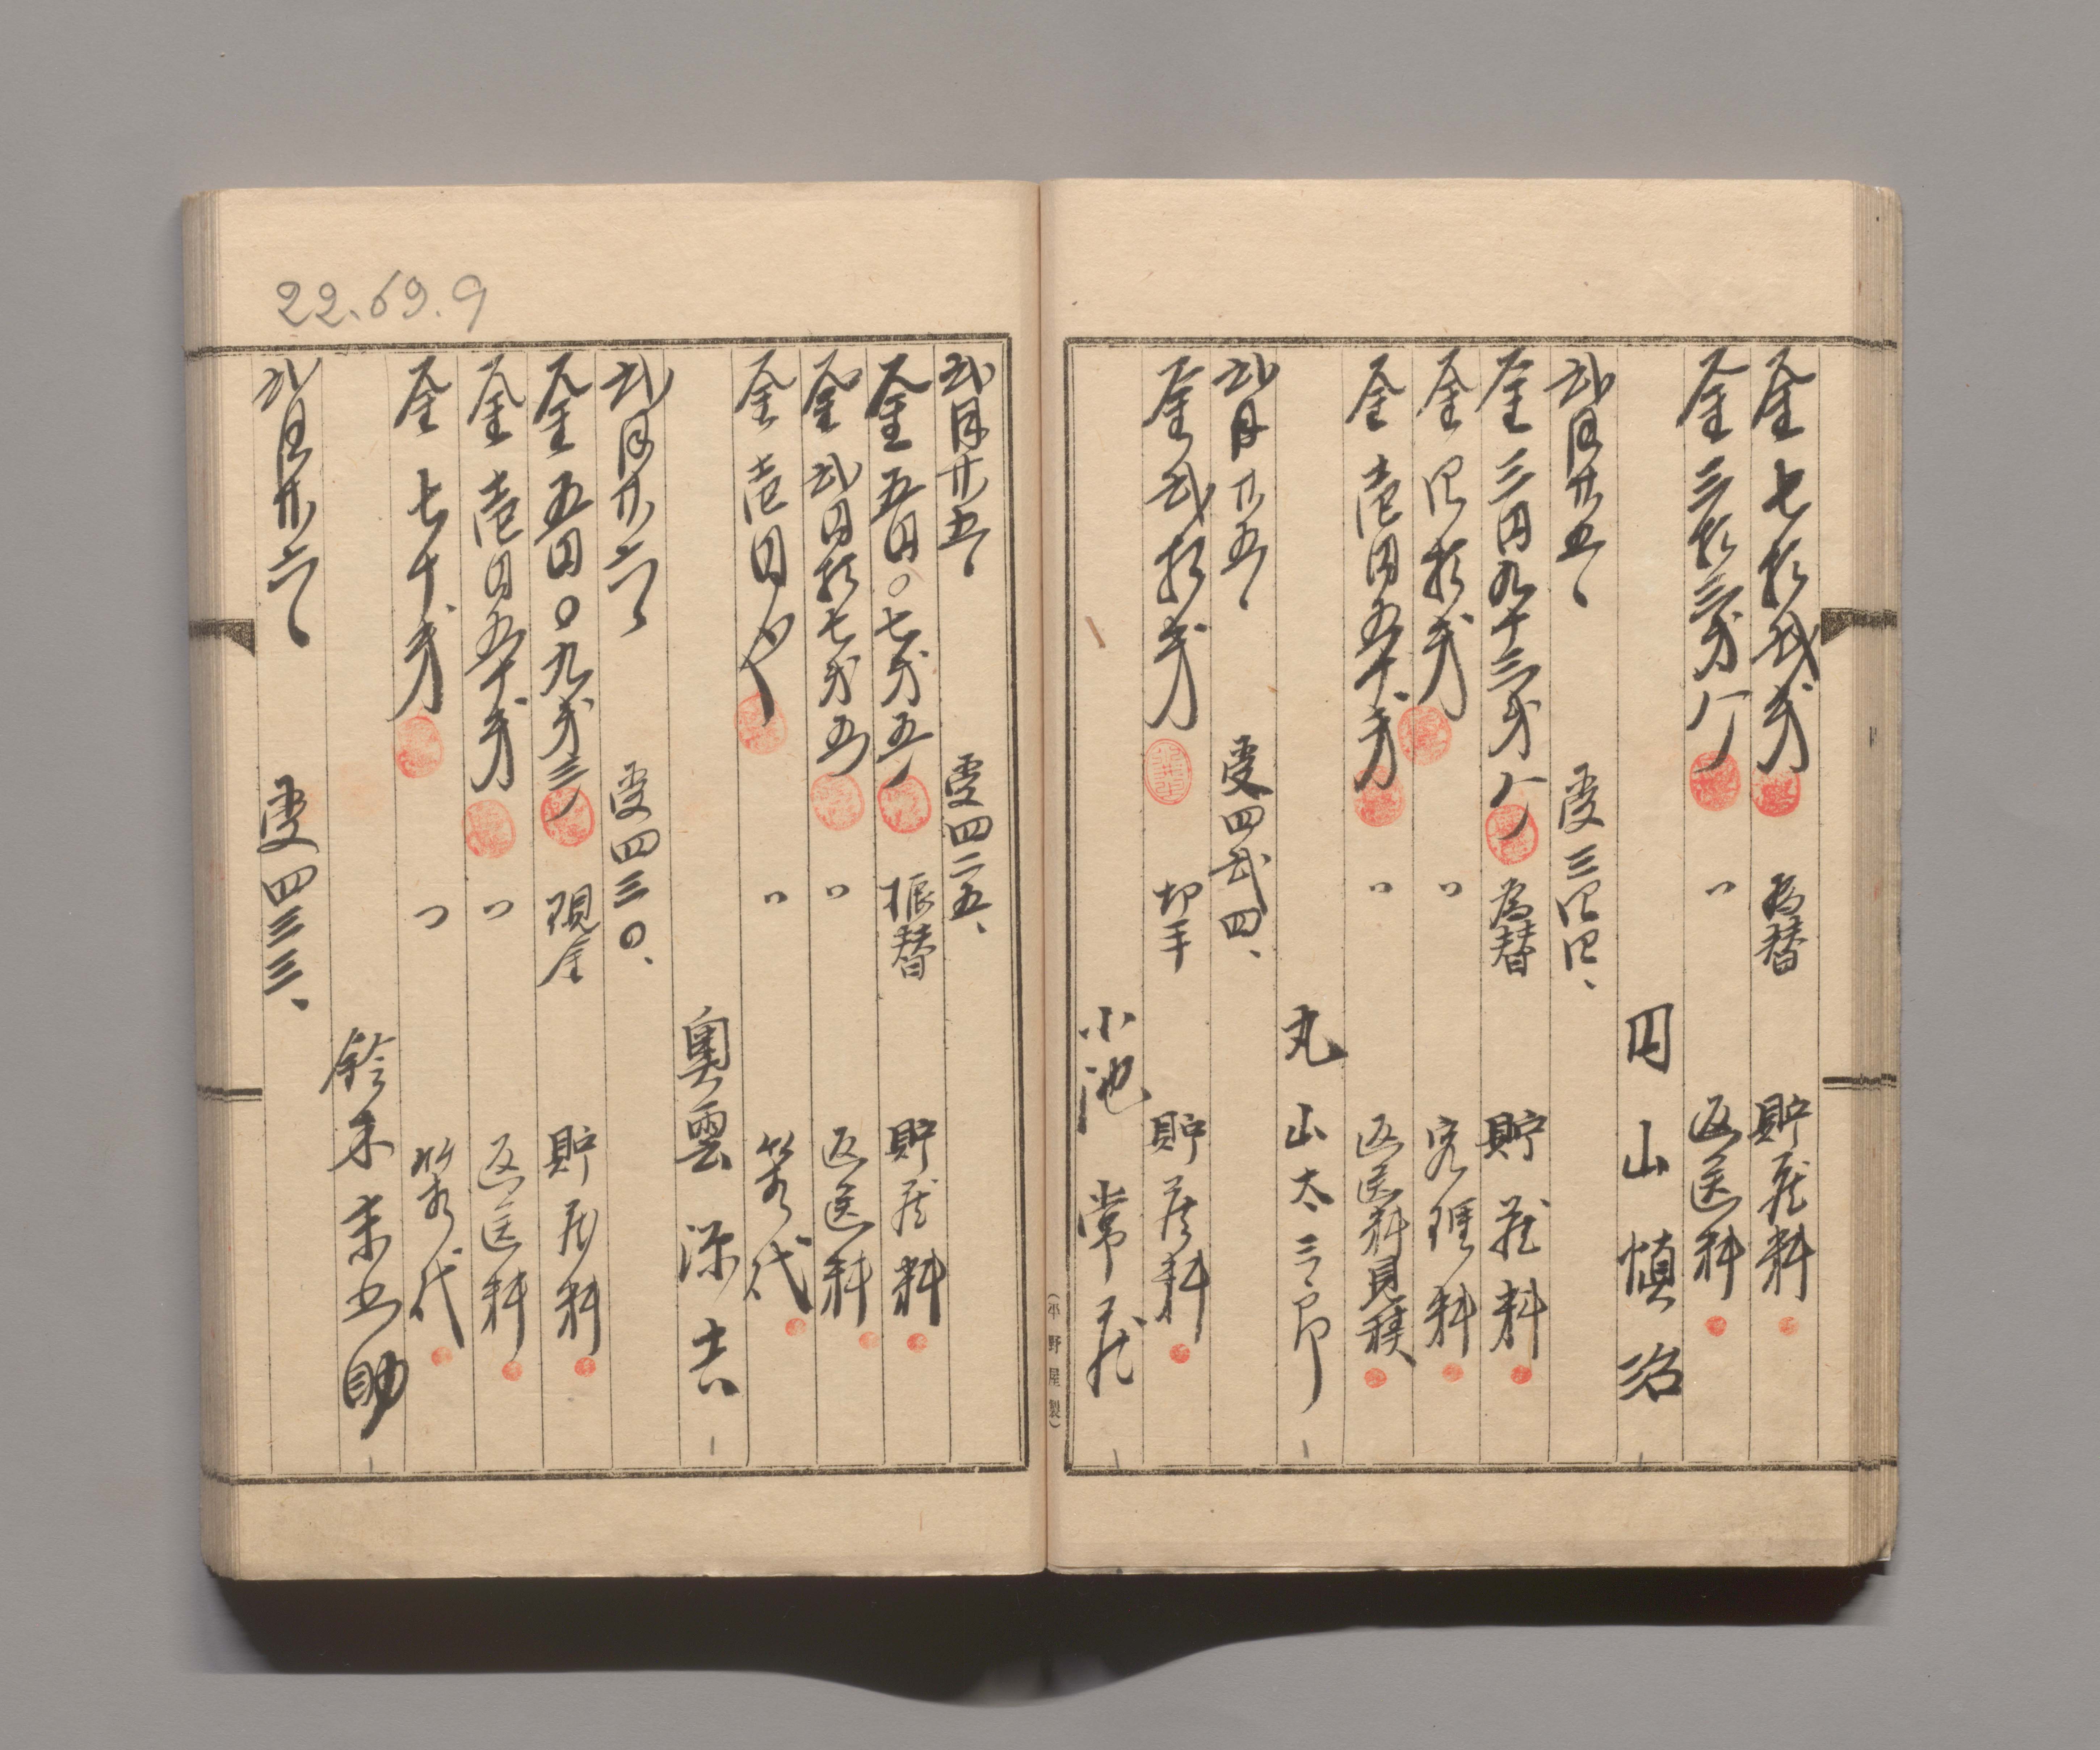 金七拾弐銭 為替 貯蔵料
金三拾三銭 〃 返送料
円山慎治
弐月廿五、 受三四四、
金三円九十三銭 為替 貯蔵料
金四拾銭 〃 料
金壱円五十銭 〃 返送料見積
丸山太三郎
弐月廿五、 受四弐四、
金弐拾銭 切手 貯蔵料
小池常蔵
(平野屋製)
弐月廿五、 受四二五、
金五円〇七銭五 振替 貯蔵料
金弐円拾七銭五 〃 返送料
金壱円也 〃 代
奥雲源吉
弐月廿六、 受四三〇、
金五円〇九銭三 現金 貯蔵料
金壱円五十銭 〃 返送料
金七十銭 〃 代
鈴木助
22.69.9
弐月廿六、 受四三三、